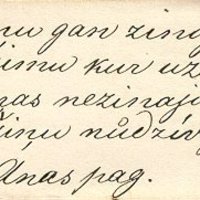 nu gan zing
imu kur uz
nas nezinaji
iņu nūdzīv
Anas pag.